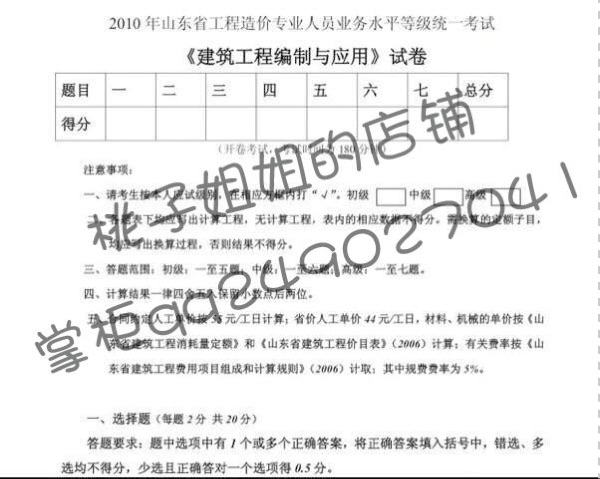 2010 年山东省工程造价专业人员业务水平等级统一考试
《建筑工程编制与应用》试卷
题目 一 二 三 四 五 六 七 总分
得分
（开卷考试，考试时间为 180 分钟）
注意事项：
一、请考生按本人应试级别，在相应方框内打“√”。初级 中级 高级
二、各题表下均应写出计算工程，无计算工程，表内的相应数据不得分。需换算的定额子目，
均应写出换算过程，否则结果不得分。
三、答题范围：初级：一至五题；中级：一至六题；高级：一至七题。
四、计算结果一律四舍五入保留小数点后两位。
五、合同约定人工单价按 55 元/工日计算；省价人工单价 44 元/工日，材料、机械的单价按《山
东省建筑工程消耗量定额》和《山东省建筑工程价目表》（2006）计算；有关费率按《山
东省建筑工程费用项目组成和计算规则》（2006）计取；其中规费费率为 5%。
一、选择题（每题 2 分 共 20 分）
答题要求：题中选项中有 1 个或多个正确答案，将正确答案填入括号中，错选、多
选均不得分，少选且正确答对一个选项得 0.5 分。
桃子姐姐的店铺
掌柜qq249027041